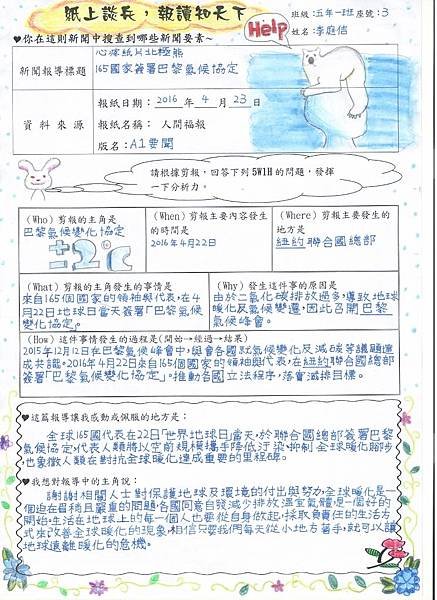 紙上談兵，報讀知天下
班級：五年一班 座號：3
姓名：李庭信
Help
♥你在這則新聞中搜查到哪些新聞要素~
新聞報導標題
心疼紙片北極熊
165國家簽署巴黎氣候協定
資料來源
報紙日期：2016年4月23日
報紙名稱：人間福報
版名：A1要聞
請根據剪報，回答下列5W1H的問題，發揮
一下分析力。
(Who) 剪報的主角是
巴黎氣候變化協定
±2°C
(When) 剪報主要內容發生
的時間是
2016年4月22日
(Where) 剪報主要發生的
地方是
紐約聯合國總部
(What) 剪報的主角發生的事情是
來自165個國家的領袖與代表，在4
月22日地球日當天簽署「巴黎氣候
變化協定」。
(Why) 發生這件事的原因是
由於二氧化碳排放過多，導致地球
暖化及氣候變遷，因此召開巴黎
氣候峰會。
(How) 這件事情發生的過程是(開始→經過→結果)
2015年12月12日在巴黎氣候峰會中，與會各國就氣候變化及減碳等議題達
成共識。2016年4月22日來自165個國家的領袖與代表，在紐約聯合國總部
簽署「巴黎氣候變化協定」。推動各國立法程序，落實減排目標。
♥這篇報導讓我感動或佩服的地方是：
全球165國代表在22日「世界地球日」當天，於聯合國總部簽署巴黎
氣候協定，代表人類將以空前規模攜手降低汙染，抑制全球暖化腳步，
也象徵人類在對抗全球暖化達成重要的里程碑。
♥我想對報導中的主角說：
謝謝相關人士對保護地球及環境的付出與努力，全球暖化是一
個迫在眉稍且嚴重的問題，各國同意自發減少排放溫室氣體，是一個好的
開始，生活在地球上的每一個人也要從自身做起，採取負責任的生活方
式來改善全球暖化的現象，相信只要我們每天從小地方著手，就可以讓
地球遠離暖化的危機。